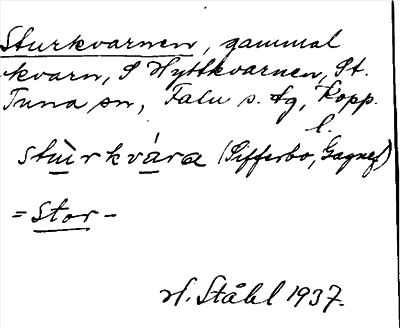 Sturkvarnen, gammal
kvarn, S Hyttkvarnen, St.
Tuna sn, Falu s. dg, Kopp.
l.
stùrkvára (Sifferbo, Gagnef)
= Stor-
H. Ståhl 1937.